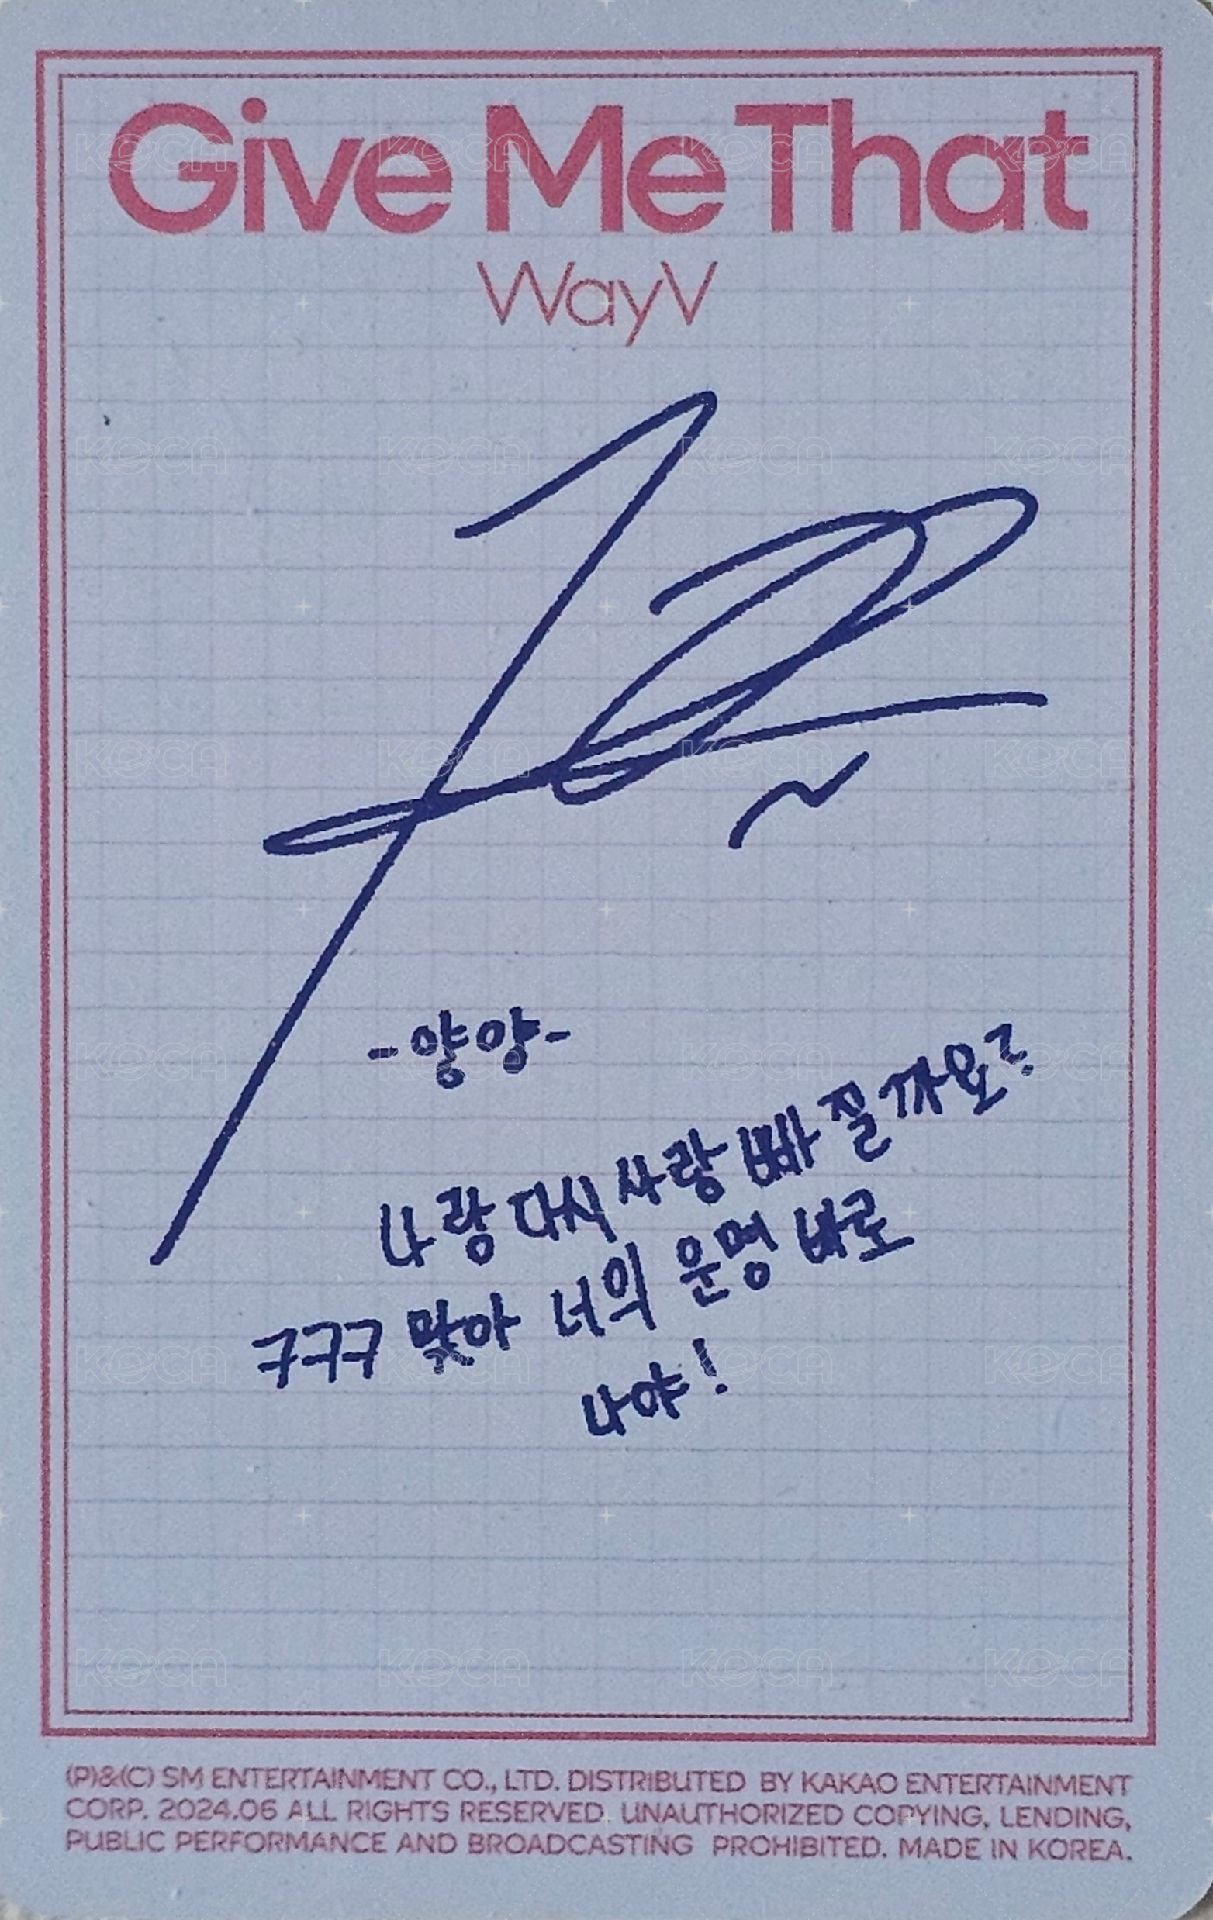 Give Me That
WayV
-양양-
나랑 다시 사랑 빠질까요?
ㅋㅋㅋ 맞아 너의 운명 바로
나야!
(P)&(C) SM ENTERTAINMENT CO., LTD. DISTRIBUTED BY KAKAO ENTERTAINMENT
CORP. 2024.06 ALL RIGHTS RESERVED. UNAUTHORIZED COPYING, LENDING,
PUBLIC PERFORMANCE AND BROADCASTING PROHIBITED. MADE IN KOREA.
KOCA